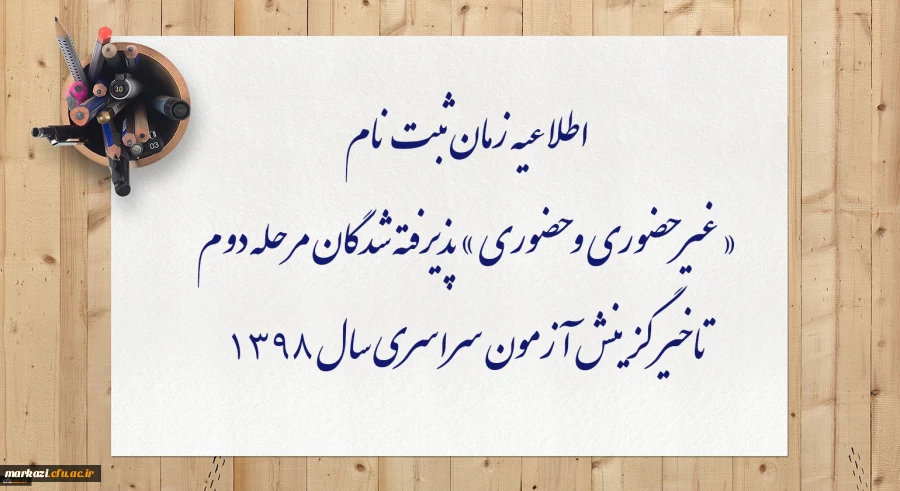 اطلاعیه زمان ثبت نام
« غیرحضوری و حضوری » پذیرفته شدگان مرحله دوم
تاخیر گزینش آزمون سراسری سال ۱۳۹۸
30
03
markazi.cfu.ac.ir